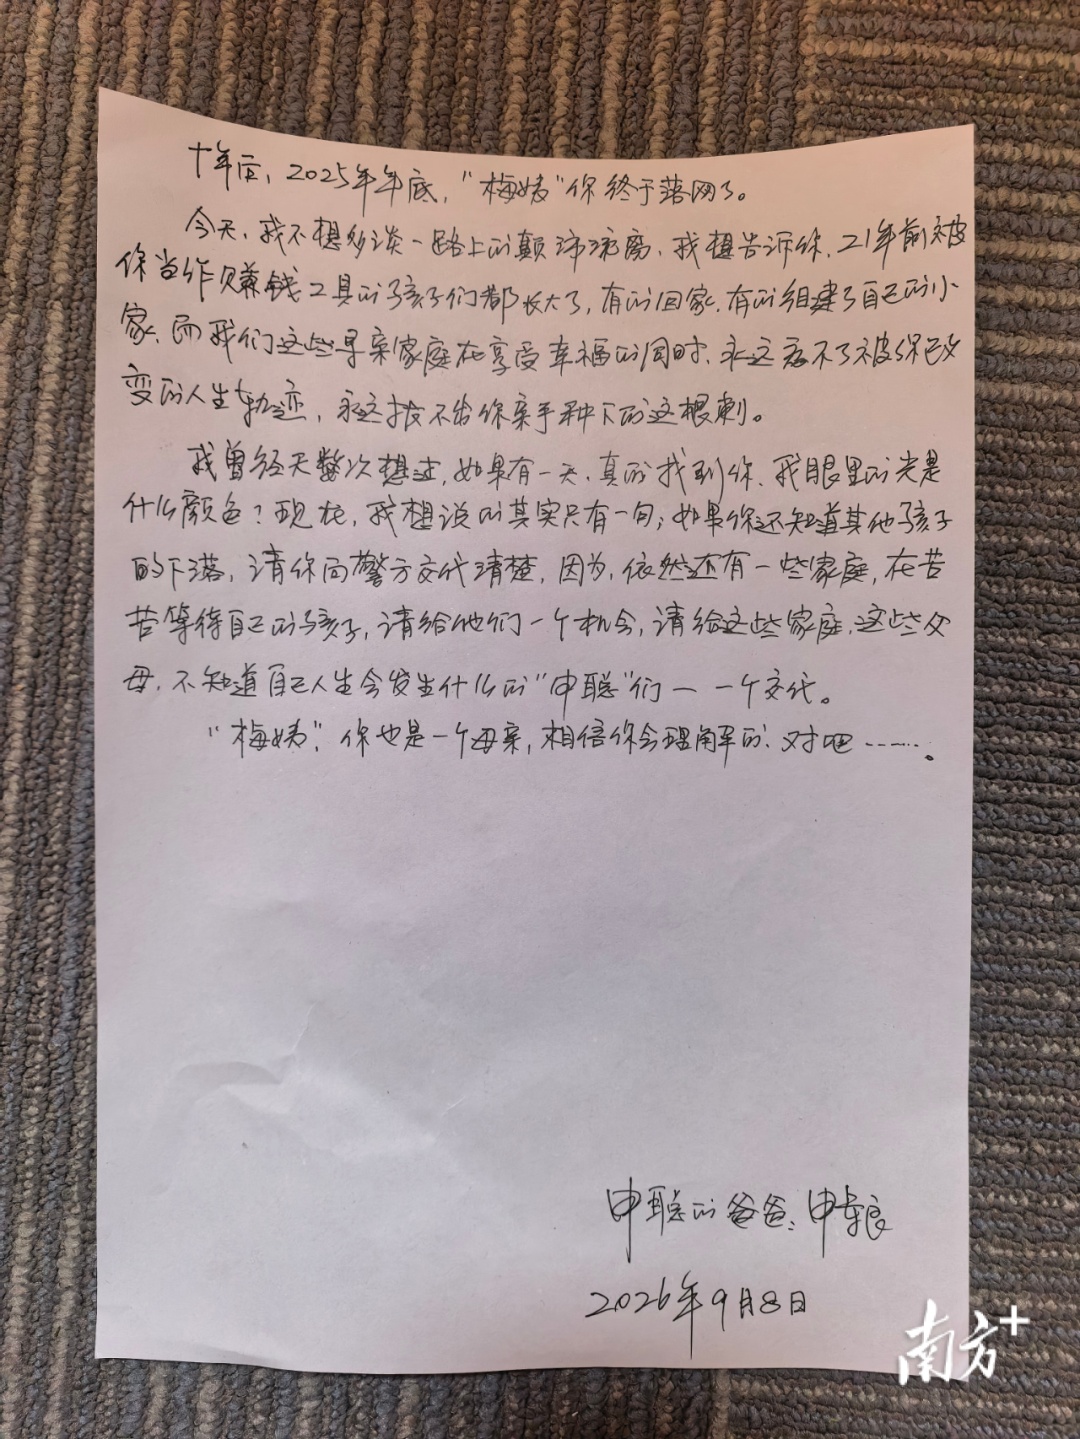 十年后，2025年年底，“梅姨”你终于落网了。
今天，我不想多谈一路上的颠沛流离，我想告诉你，21年前被
你当作赚钱工具的孩子们都长大了，有的回家，有的组建了自己的小
家，而我们这些寻亲家庭在享受幸福的同时，永远忘不了被你改
变的人生轨迹，永远拔不出你亲手种下的这根刺。
我曾经无数次想过，如果有一天，真的找到你，我眼里的光是
什么颜色？现在，我想说的其实只有一句；如果你还知道其他孩子
的下落，请你向警方交代清楚，因为，依然还有一些家庭，在苦
苦等待自己的孩子，请给他们一个机会，请给这些家庭，这些父
母，不知道自己人生会发生什么的“申聪”们一一个交代。
“梅姨”，你也是一个母亲，相信你会理解的，对吧……。
申聪的爸爸：申军良
2026年9月8日
南方+